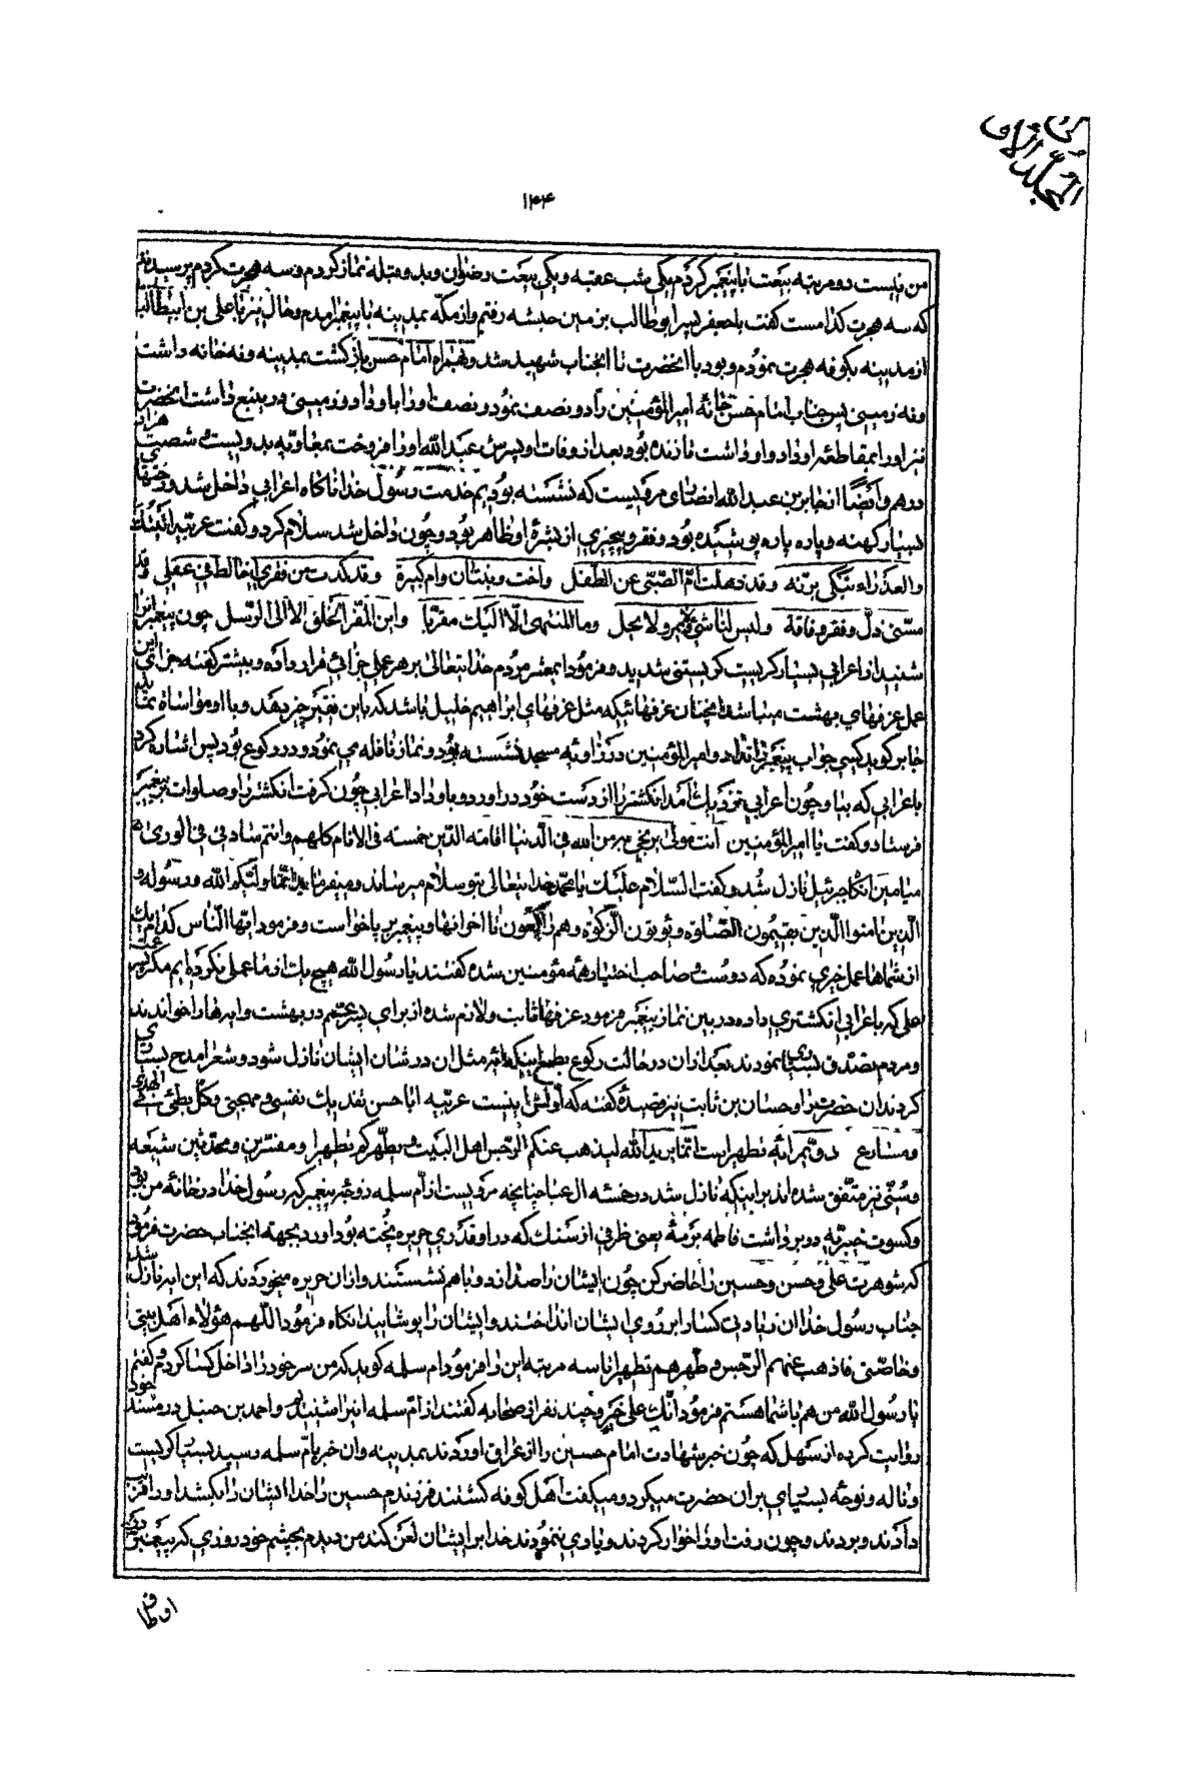 المجلد الأول
۱۴۴
من نیست دو مرتبه بیعت با پیغمبر کردم یکی شب عقبه و یکی بیعت رضوان و بدو قبله نماز کردم و سه هجرت کردم پرسیدند
که سه هجرت کدامست گفت با جعفر پسر ابوطالب بزمین حبشه رفتم و از مکه بمدینه با پیغمبر امدم و حال نیز با علی بن ابیطالب
از مدینه بکوفه هجرت نمودم و بود با انحضرت تا انجناب شهید شد و بهمراه امام حسن بازگشت بمدینه و نه خانه داشت
و نه زمینی پس جناب امام حسن خانه امیرالمؤمنین را دو نصف نمود و نصف او را باو داد و زمینی در ینبع داشت انحضرت
نیز او را بمقاطعه او داد و او داشت تا زنده بود و بعد از وفات او پسرش عبدالله او را فروخت بمعاویه بدویست و شصت هزار
درهم و ایضا از جابر بن عبدالله انصاری مرویست که نشسته بودیم خدمت رسول خدا ناگاه اعرابی داخل شد و رختهای
بسیار کهنه و پاره پاره پوشیده بود و فقر و بیچیزی از بشره او ظاهر بود و چون داخل شد سلام کرد و گفت عربیه اتیتک
والعذراء تبکی برنه وقد ذهلت ام الصبی عن الطفل واخت وبنتان وام کبیرة وقد کدت من فقری اخالط فی عقلی وقد
مسنی ذل وفقر وفاقة ولیس لنا شیء یمر ولا یحل وما المنتهی الا الیک مفرنا واین المفر الخلق الا الی الرسل چون پیغمبر این
شنید از اعرابی بسیار گریست گریستنی شدید و فرمود ایمعشر مردم خدایتعالی بر هر عملی جزائی قرار داده و بیشتر گفته جزای این
عمل غرفهای بهشت میباشد انچنان غرفهائیکه مثل غرفهای ابراهیم خلیل باشد که باین فقیر چیز دهد و با او مواساة نماید
جابر گوید کسی جواب پیغمبر را نداد و امیرالمؤمنین در زاویه مسجد نشسته بود و نماز نافله می نمود و در رکوع بود پس اشاره کرد
باعرابی که بیا و چون اعرابی نزدیک امد انگشتر را از دست خود دراورد و باو داد اعرابی چون گرفت انگشتر را و صلوات بر پیغمبر
فرستاد و گفت یا امیرالمؤمنین انت مولی یرتجی به من الله فی الدنیا اقامة الدین خمسة فی الانام کلهم وانتم سادتی فی الوری
میامین انگاه جبرئیل نازل شد و گفت السلام علیک یا محمد خدایتعالی بتو سلام میرساند و میفرماید انما ولیکم الله ورسوله و
الذین امنوا الذین یقیمون الصلوة ویؤتون الزکوة وهم راکعون تا اخر انها و پیغمبر بر پا خواست و فرمود ایها الناس کدام یک
از شماها عمل خیری نموده که دوست و صاحب اختیار همه مؤمنین شده گفتند یا رسول الله هیچ یک از ما عمل نکرده ایم مگر پسر عمت
علی که باعرابی انگشتری داده در بین نماز پیغمبر فرمود غرفها ثابت و لازم شده از برای پسر عمم در بهشت و ایه را خواندند
و مردم تصدق بسیاری نمودند بعد از ان در حالت رکوع بطمع اینکه ایه مثل ان در شان ایشان نازل شود و شعرا مدح بسیاری
کردند ان حضرت را و حسان بن ثابت نیز قصیده گفته که اولش اینست عربیه اباحسن تفدیک نفسی و مهجتی وکل بطئ فی الهدی
ومسارع دویم ایه تطهیر است انما یرید الله لیذهب عنکم الرجس اهل البیت و یطهرکم تطهیرا و مفسرین و محدثین شیعه
و سنی نیز متفق شده اند بر اینکه نازل شد در خمسه ال عبا چنانچه مرویست از ام سلمه زوجه پیغمبر که رسول خدا در خانه من بود
و کسوت خیبریه در بر داشت فاطمه برمه یعنی ظرفی از سنگ که در او قدری حریره پخته بود اورد بجهة انجناب حضرت فرمود
که شوهرت علی و حسن و حسین را حاضر کن چون ایشان را صدا زد و با هم نشستند و ازان حریره میخوردند که این ایه نازل شد
جناب رسول خدا ان زیادتی کسا را بر روی ایشان انداختند و ایشان را پوشانید انگاه فرمود اللهم هؤلاء اهل بیتی
وخاصتی فاذهب عنهم الرجس وطهرهم تطهیرا تا سه مرتبه این را فرمود ام سلمه گوید که من سر خود را داخل کسا کردم و گفتم
یا رسول الله من هم با شما هستم فرمود انک علی خیر و چند نفر از صحابه گفتند از ام سلمه اینرا شنیدیم و احمد بن حنبل در مسند خود
روایت کرده از سهل که چون خبر شهادت امام حسین را از عراق اوردند بمدینه و ان خبر بام سلمه رسید بسیار گریست
و ناله و نوحه بسیاری بران حضرت میکرد و میگفت اهل کوفه کشتند فرزندم حسین را خدا ایشان را بکشد او را فریب
دادند و بردند و چون رفت او را خوار کردند و یاری ننمودند خدا بر ایشان لعن کند من دیدم بچشم خود روزی که پیغمبر
او طاق